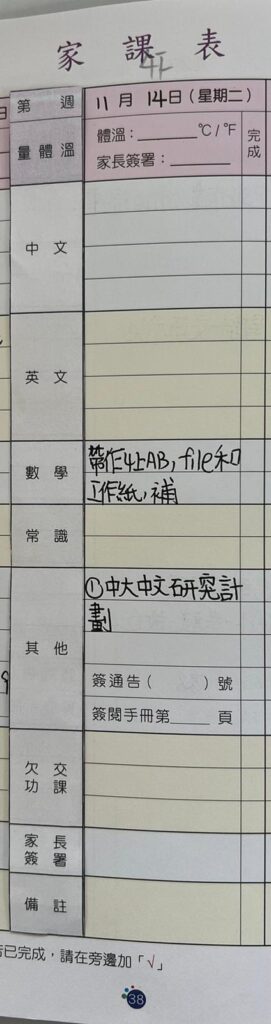 家 課 表
第 週
11 月 14 日 (星期二)
量體溫
體溫：______°C / °F
家長簽署：______
完成
中 文
英 文
數 學
帶作4上AB, file和
工作紙, 補
常 識
其 他
①中大中文研究計
劃
簽通告 ( ) 號
簽閱手冊第____ 頁
欠 交
功 課
家 長
簽 署
備 註
已完成，請在旁邊加「√」
38